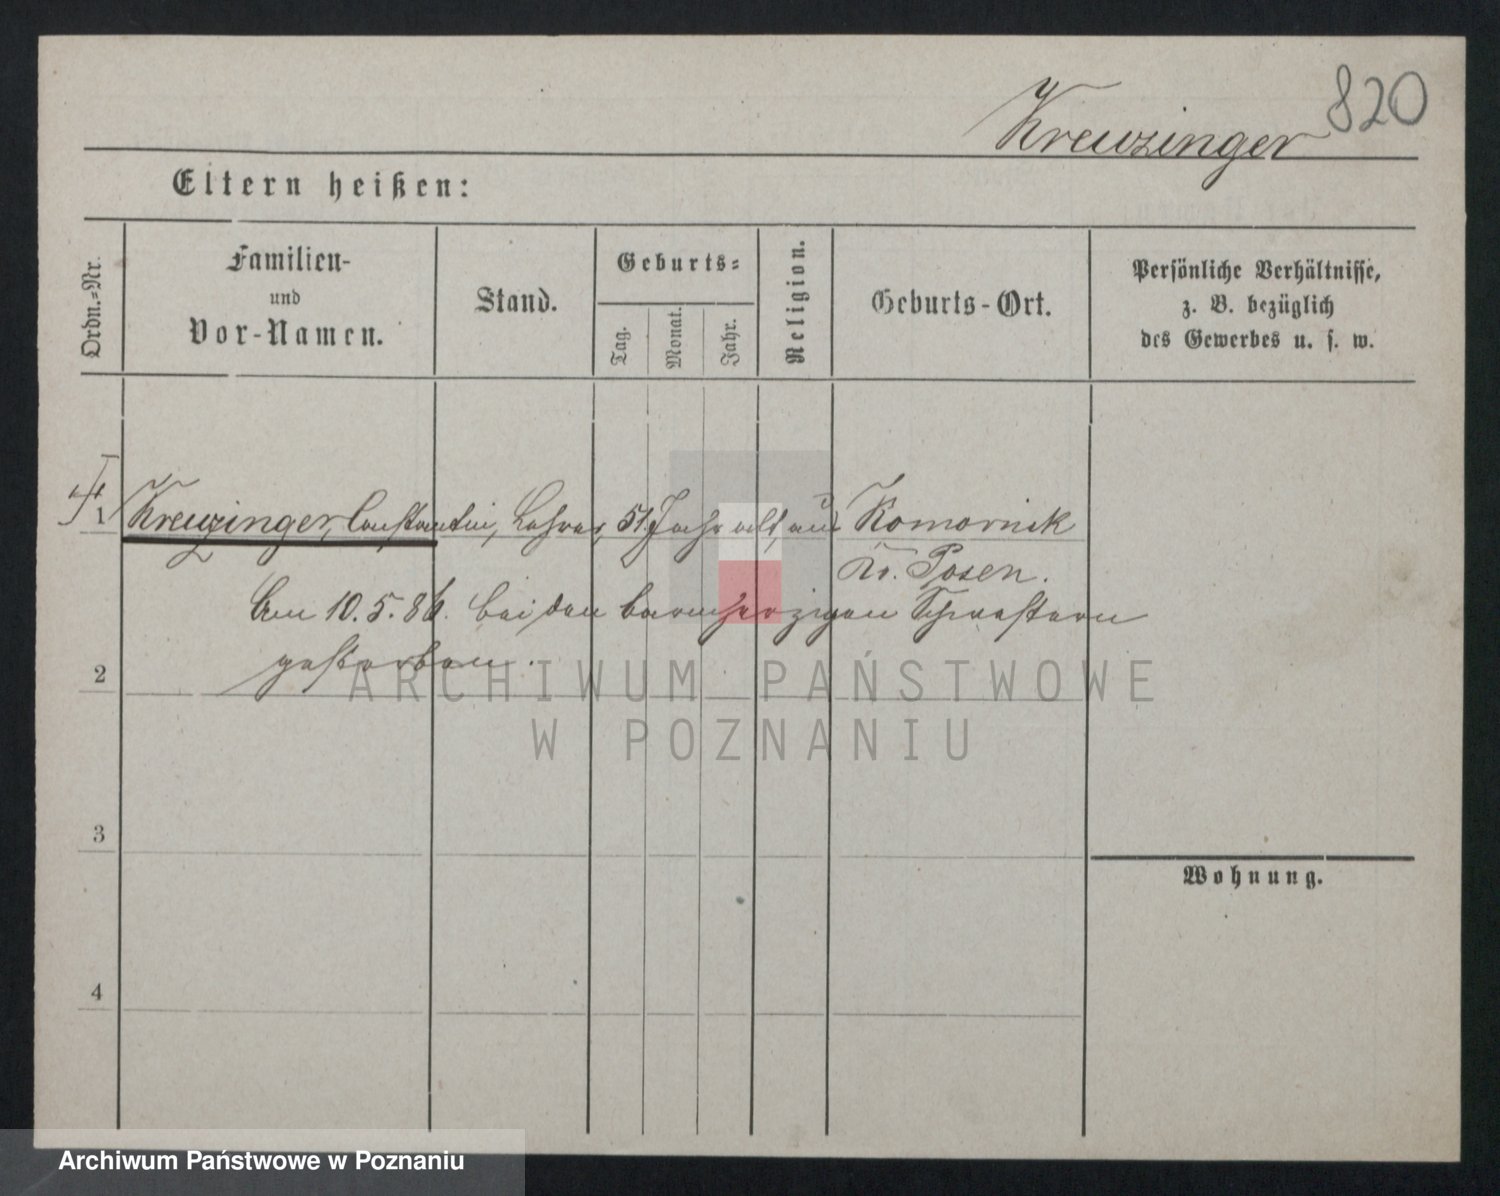 820
Kreuzinger
Eltern heißen:
Ordn.-Nr.
Familien-
und
Vor-Namen.
Stand.
Geburts-
Tag.
Monat.
Jahr.
Religion.
Geburts-Ort.
Persönliche Verhältnisse,
z. B. bezüglich
des Gewerbes u. s. w.
1 Kreuzinger, Constantin, Lehrer, 51 Jahr alt, aus Komornik
Kr. Posen.
Am 10.5.86. bei den barmherzigen Schwestern
gestorben.
2
ARCHIWUM PAŃSTWOWE
W POZNANIU
3
Wohnung.
4
Archiwum Państwowe w Poznaniu